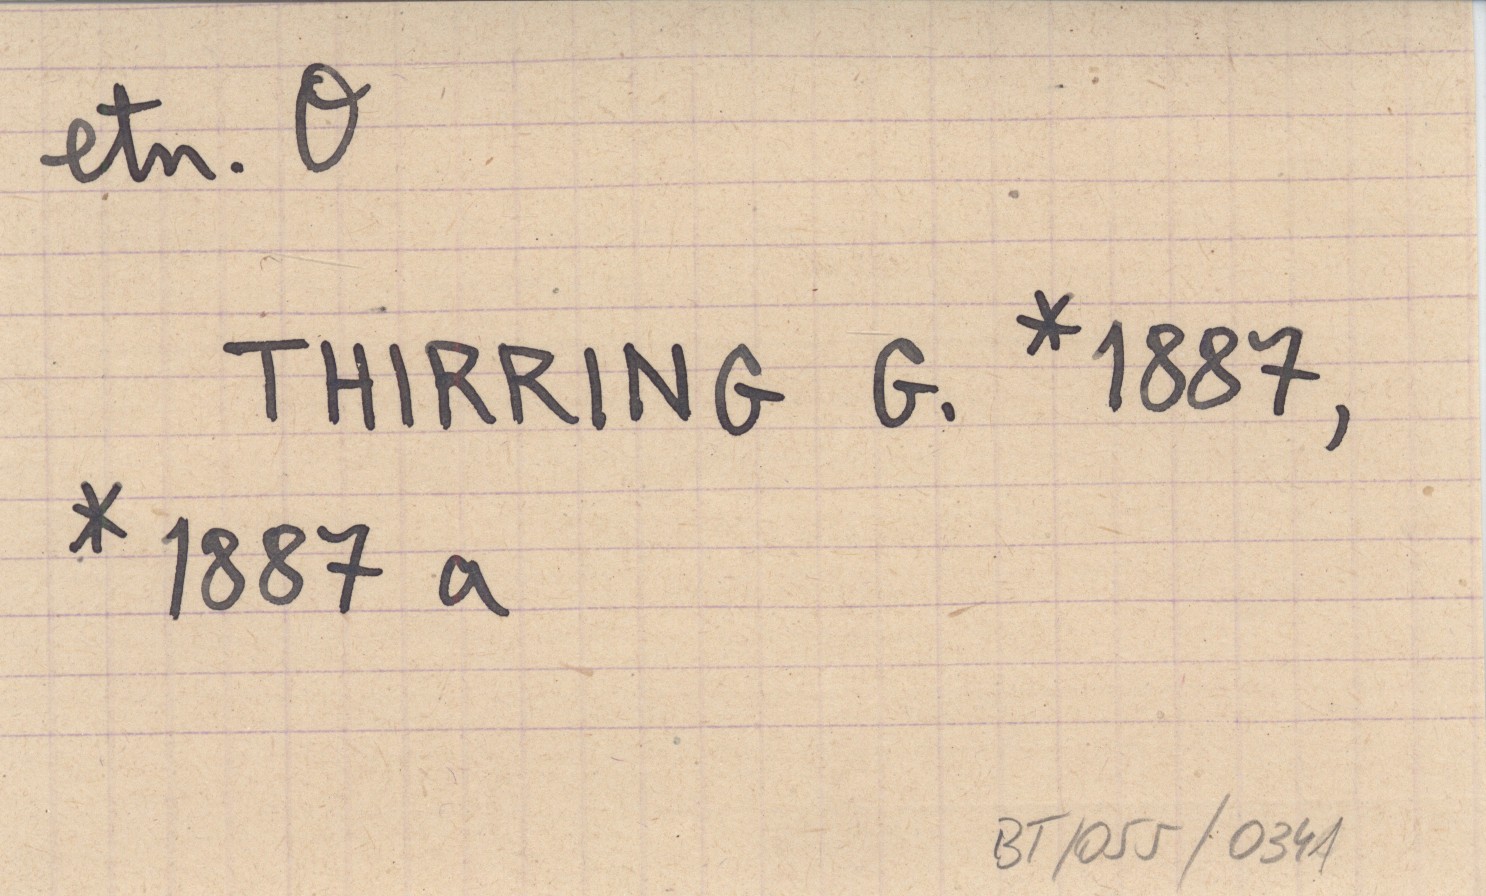 etn. O
THIRRING G. *1887,
* 1887 a
BT/055/0341